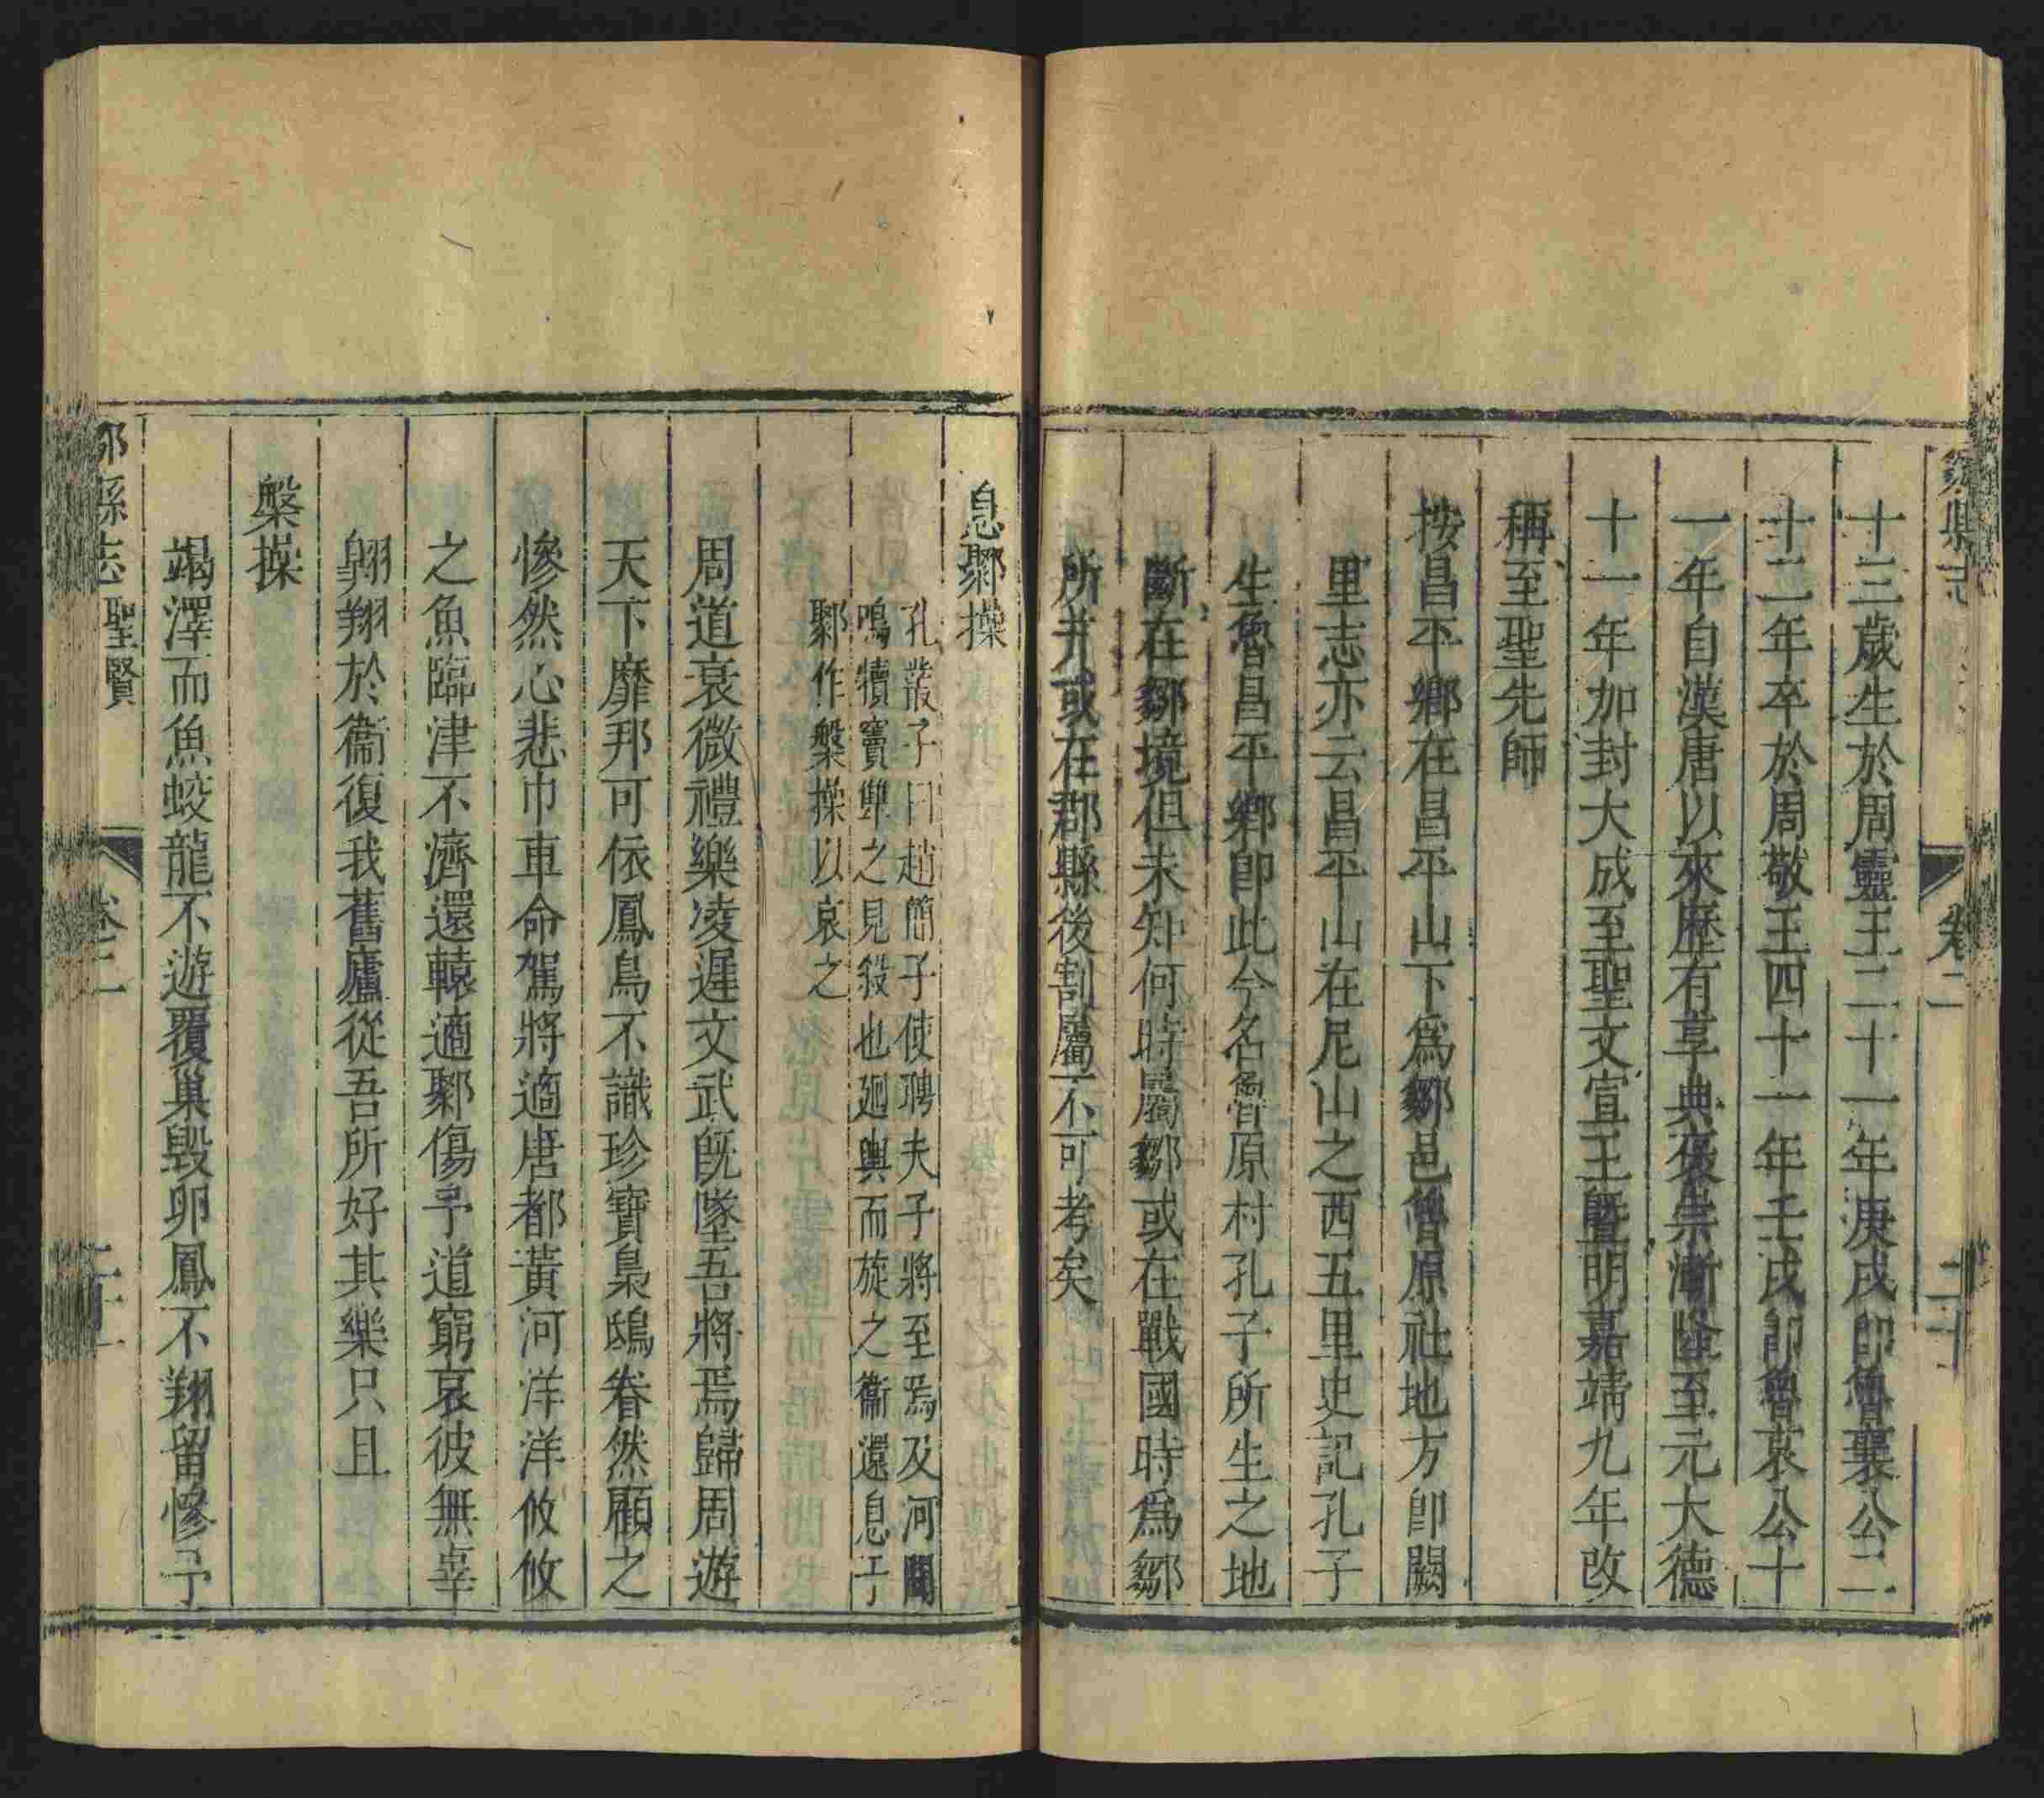 鄒縣志 卷二 二十
十三歲生於周靈王二十一年庚戌卽魯襄公二
十二年卒於周敬王四十一年壬戌卽魯哀公十
一年自漢唐以來歷有享典褒崇漸隆至元大德
十一年加封大成至聖文宣王曁明嘉靖九年改
稱至聖先師
按昌平鄉在昌平山下爲鄒邑魯原社地方卽闕
里志亦云昌平山在尼山之西五里史記孔子
生魯昌平鄉卽此今名魯原村孔子所生之地
斷在鄒境但未知何時屬鄒或在戰國時爲鄒
所并或在郡縣後割屬不可考矣
息鄹操
孔叢子曰趙簡子使聘夫子將至焉及河聞
鳴犢竇犨之見殺也廻輿而旋之衞還息于
鄹作槃操以哀之
周道衰微禮樂凌遲文武旣墜吾將焉歸周遊
天下靡邦可依鳳鳥不識珍寶梟鴟眷然顧之
慘然心悲巾車命駕將適唐都黃河洋洋攸攸
之魚臨津不濟還轅適鄹傷予道窮哀彼無辜
翺翔於衞復我舊廬從吾所好其樂只且
槃操
竭澤而魚蛟龍不遊覆巢毀卵鳳不翔留慘予
縣志 聖賢 卷二